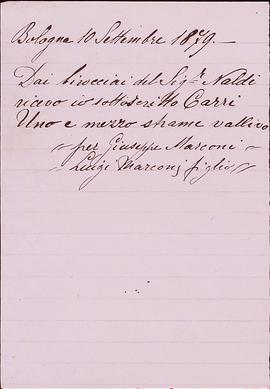 Bologna 10 Settembre 1879.—
Dai birocciai del Sigr. Naldi
ricevo io sottoscritto Carri
Uno e mezzo strame vallivo
per Giuseppe Marconi
Luigi Marconi figlio